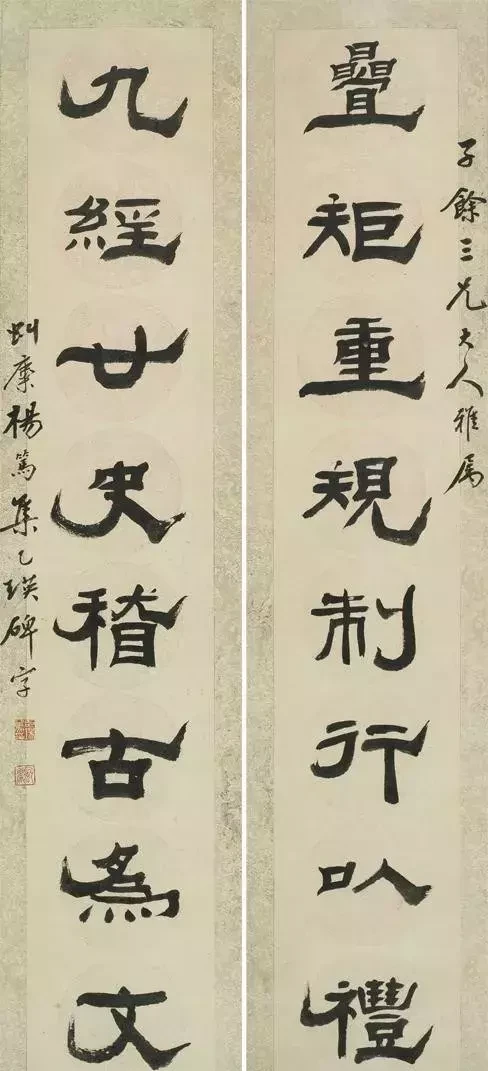 子餘三兄大人雅属
疊矩重規制行以禮
九經廿史稽古為文
虯麋楊篤集乙瑛碑字